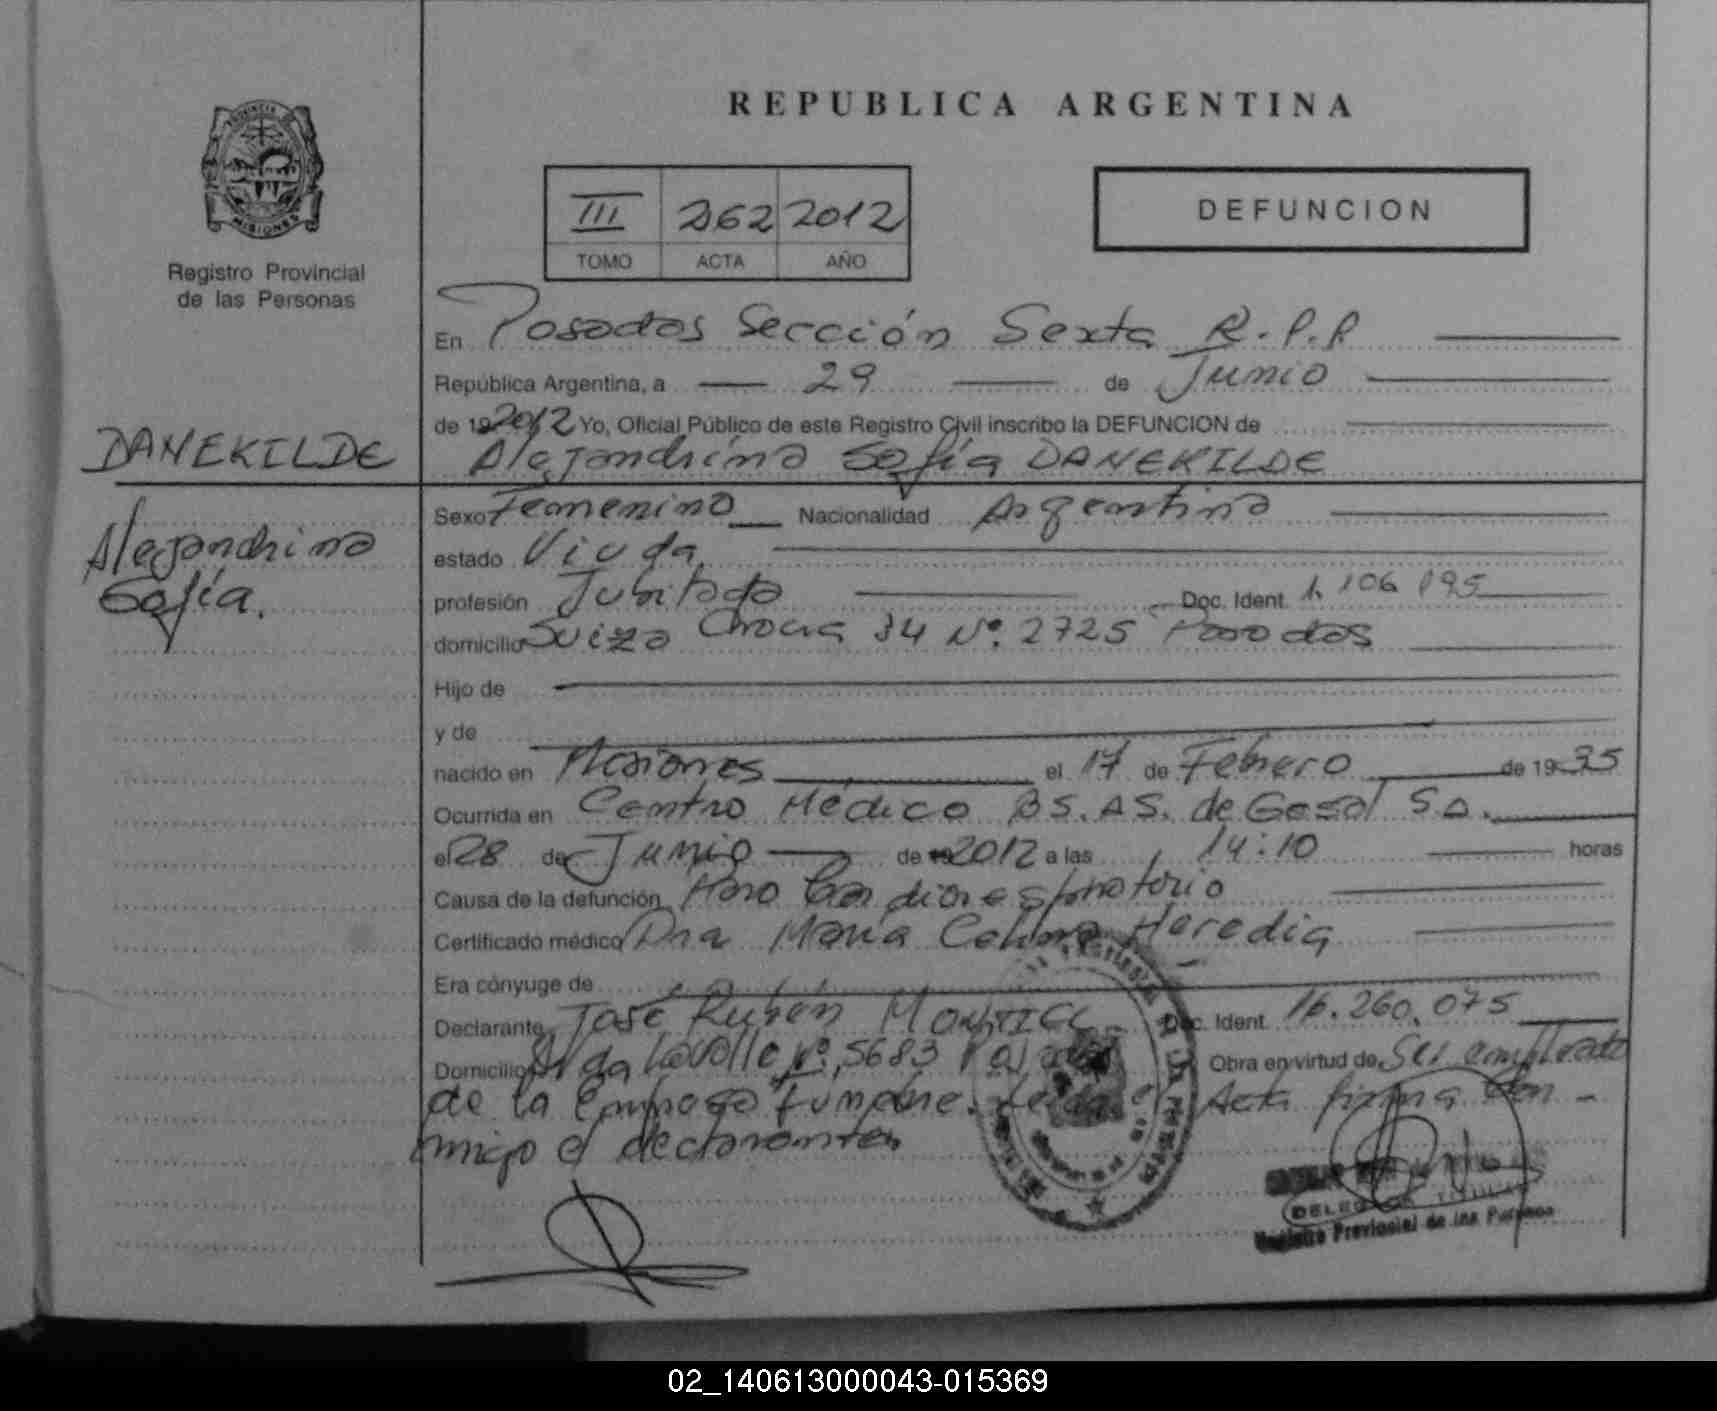 REPUBLICA ARGENTINA
PROVINCIA DE
MISIONES
III 262 2012
TOMO ACTA AÑO
DEFUNCION
Registro Provincial
de las Personas
En Posadas Sección Sexta R.P.P
República Argentina, a 29 de Junio
de 19 2012 Yo, Oficial Público de este Registro Civil inscribo la DEFUNCION de
DANEKILDE
Alejandrina Sofía DANEKILDE
Alejandrina
Sofía.
Sexo Femenino Nacionalidad Argentina
estado Viuda
profesión Jubilada Doc. Ident. 1.106 195
domicilio Suiza Chacra 34 Nº. 2725 Posadas
Hijo de
y de
nacido en Misiones el 17 de Febrero de 19 35
Ocurrida en Centro Médico BS.AS. de Gesal S.A.
el 28 de Junio de 2012 a las 14:10 horas
Causa de la defunción Paro Cardiorespiratorio
Certificado médico Dra María Heredia
Era cónyuge de
Declarante José Rubén MONTIEL Doc. Ident. 16.260.075
Domicilio Avda Lavalle Nº. 5683 Posadas Obra en virtud de Ser empleado
de la Empresa fúnebre. Leída el Acta firma con-
migo el declarante
DELEGADA TITULAR
Registro Provincial de las Personas
02_140613000043-015369